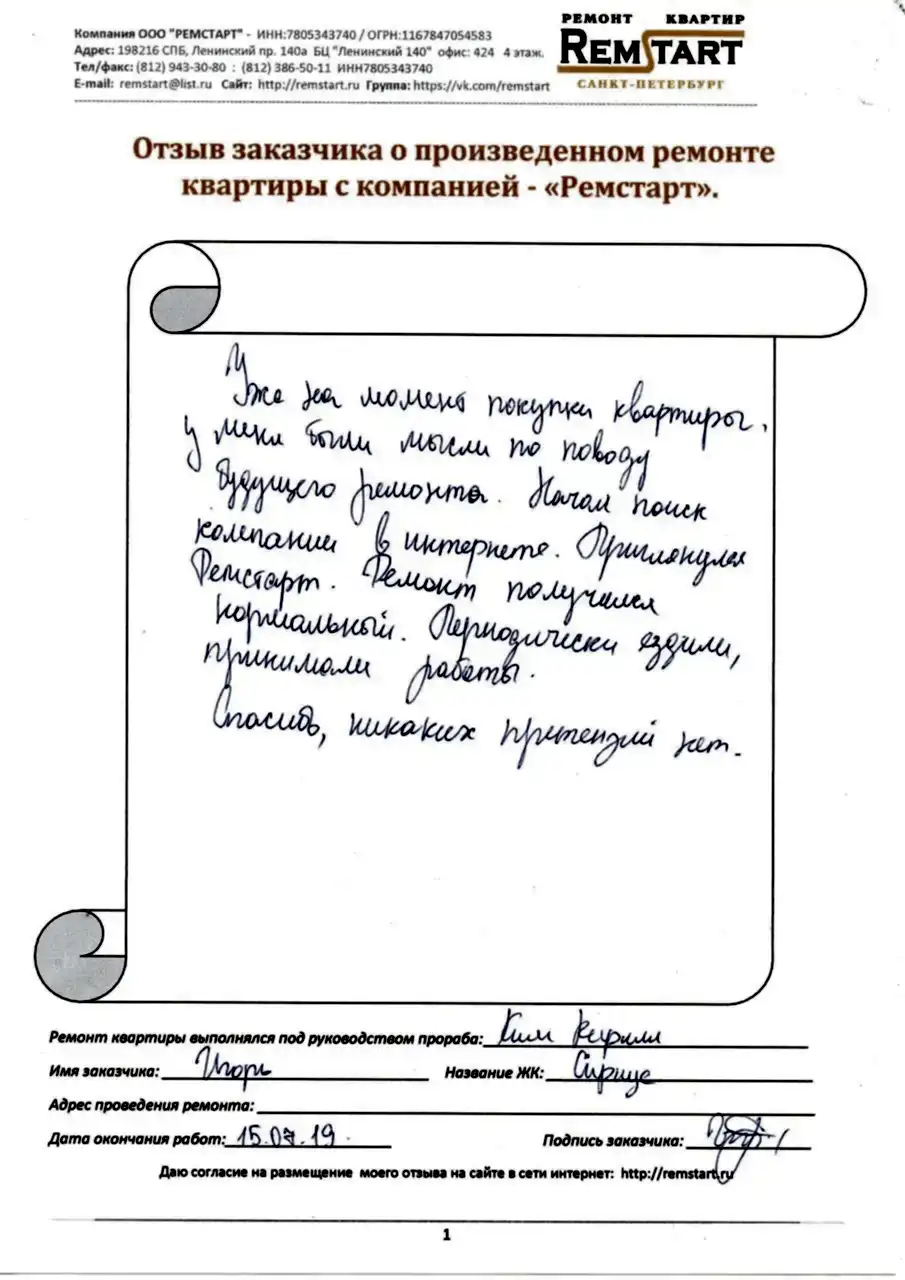 Компания ООО "РЕМСТАРТ" - ИНН:7805343740 / ОГРН:1167847054583
Адрес: 198216 СПБ, Ленинский пр. 140а БЦ "Ленинский 140" офис: 424 4 этаж.
Тел/факс: (812) 943-30-80 : (812) 386-50-11 ИНН7805343740
E-mail: remstart@list.ru Сайт: http://remstart.ru Группа: https://vk.com/remstart
РЕМОНТ КВАРТИР
REMSTART
САНКТ-ПЕТЕРБУРГ
Отзыв заказчика о произведенном ремонте
квартиры с компанией - «Ремстарт».
Уже на момент покупки квартиры,
у меня были мысли по поводу
будущего ремонта. Начал поиск
компании в интернете. Приглянулся
Ремстарт. Ремонт получился
нормальный. Периодически ездили,
принимали работы.
Спасибо, никаких притензий нет.
Ремонт квартиры выполнялся под руководством прораба: Ким Кирилл
Имя заказчика: Игорь Название ЖК: Сириус
Адрес проведения ремонта:
Дата окончания работ: 15.07.19. Подпись заказчика:
Даю согласие на размещение моего отзыва на сайте в сети интернет: http://remstart.ru
1